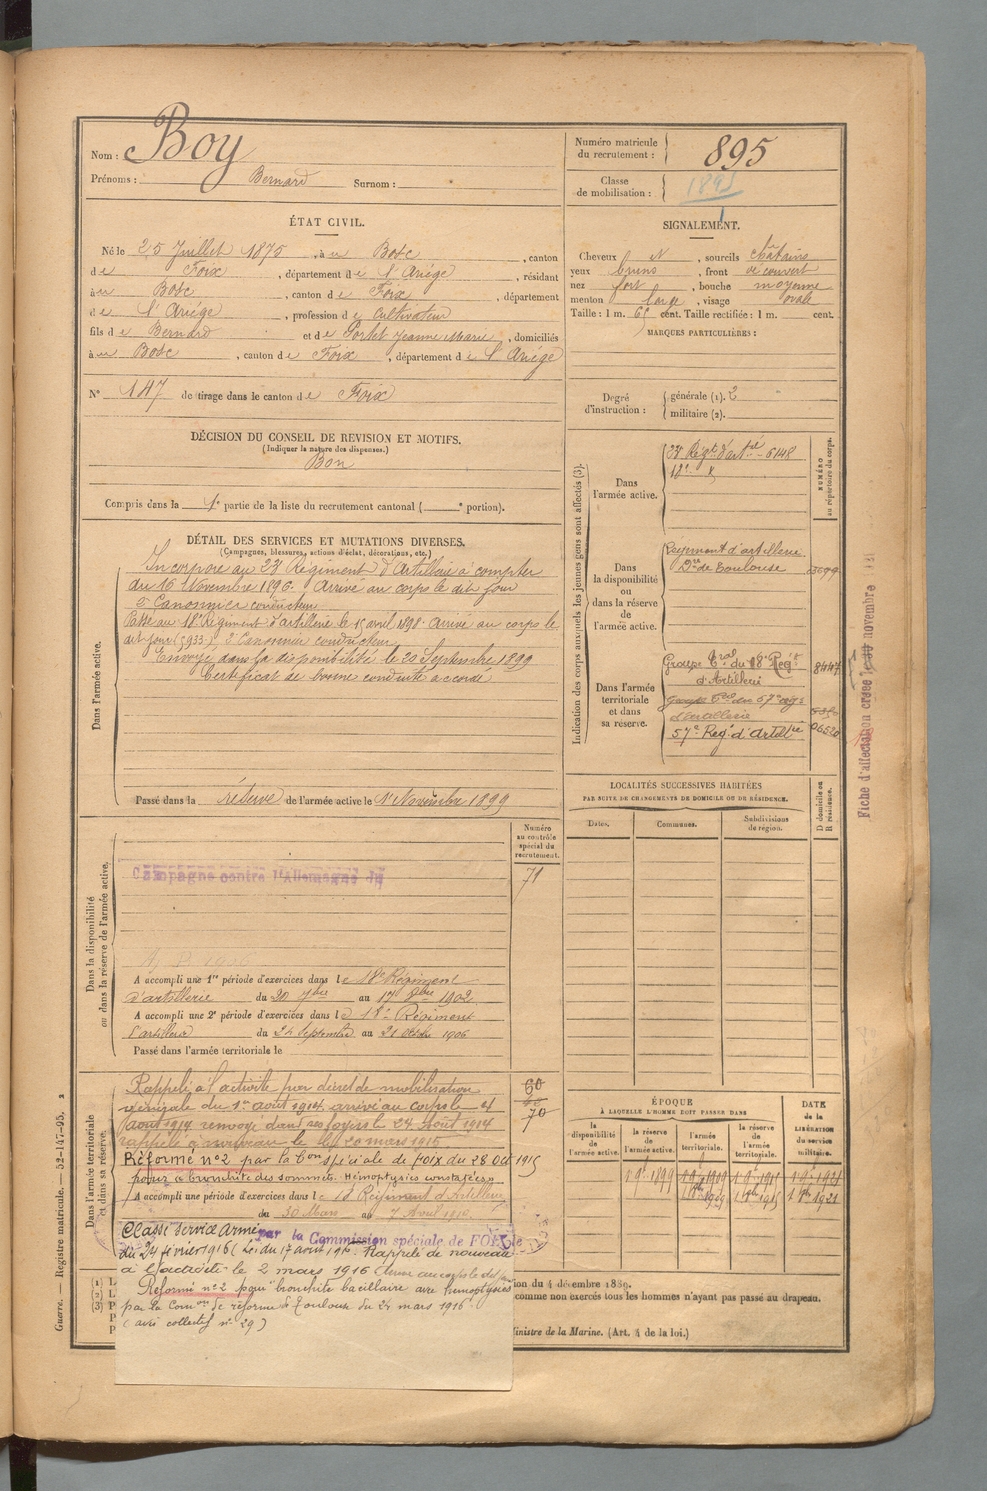 Nom : Boy
Prénoms : Bernard Surnom :
Numéro matricule du recrutement : 895
Classe de mobilisation : 1895
ÉTAT CIVIL.
Né le 25 Juillet 1875, à u Bosc, canton
de Foix, département de l'Ariége, résidant
à u Bosc, canton de Foix, département
de l'Ariége, profession de Cultivateur
fils de Bernard et de Portet Jeanne Marie, domiciliés
à u Bosc, canton de Foix, département de l'Ariége
N° 147 de tirage dans le canton de Foix
DÉCISION DU CONSEIL DE REVISION ET MOTIFS.
(Indiquer la nature des dispenses.)
Bon
Compris dans la 1e partie de la liste du recrutement cantonal ( e portion).
SIGNALEMENT.
Cheveux N, sourcils châtains
yeux bruns, front découvert
nez fort, bouche moyenne
menton large, visage ovale
Taille : 1 m. 65 cent. Taille rectifiée : 1 m. cent.
MARQUES PARTICULIÈRES :
Degré d'instruction : générale (1). 2
militaire (2).
DÉTAIL DES SERVICES ET MUTATIONS DIVERSES.
(Campagnes, blessures, actions d'éclat, décorations, etc.)
Dans l'armée active.
Incorporé au 23e Régiment d'Artillerie à compter
du 16 Novembre 1896. Arrivé au corps le dit jour
2e Canonnier conducteur
Passé au 18e Régiment d'artillerie le 15 avril 1898. arrivé au corps le
dit jour (5933) 2e Canonnier conducteur
Envoyé dans la disponibilité le 20 Septembre 1899
Certificat de bonne conduite accordé
Passé dans la réserve de l'armée active le 1er Novembre 1899
Indication des corps auxquels les jeunes gens sont affectés (3).
NUMÉRO au répertoire du corps.
Dans l'armée active.
23e Régt d'artie 6148
18e
Dans la disponibilité ou dans la réserve de l'armée active.
Régiment d'artillerie
Don de Toulouse
Dans l'armée territoriale et dans sa réserve.
Groupe Tral du 18e Régt 8447
d'Artillerie
Groupe Tral du 57e régt
d'artillerie
57e Reg. d'Artillie
Fiche d'affectation créée le novembre
LOCALITÉS SUCCESSIVES HABITÉES
PAR SUITE DE CHANGEMENTS DE DOMICILE OU DE RÉSIDENCE.
D domicile ou R résidence.
Dates.
Communes.
Subdivisions de région.
Numéro au contrôle spécial du recrutement.
71
Dans la disponibilité ou dans la réserve de l'armée active.
Campagne contre l'Allemagne du
A accompli une 1re période d'exercices dans le 18e Régiment
d'artillerie du 20 7bre au 17 8bre 1902
A accompli une 2e période d'exercices dans le 18e Régiment
d'artillerie du 24 Septembre au 21 Octobre 1906
Passé dans l'armée territoriale le
Dans l'armée territoriale et dans sa réserve.
60
70
Rappelé à l'activité par décret de mobilisation
générale du 1er août 1914 arrivé au corps le 4
août 1914 renvoyé dans ses foyers le 24 Août 1914
rappelé à nouveau le 20 mars 1915
Réformé n°2 par la Con spéciale de Foix du 28 Oct 1915
pour « bronchite des sommets. Hémoptysies constatées »
A accompli une période d'exercices dans le 18 Régiment d'Artillerie
du 30 Mars au 7 Avril 1912
Classé service armé par la Commission spéciale de FOIX le
du 24 février 1916 (Loi du 17 août 1915. Rappelé de nouveau
à l'activité le 2 mars 1916 Arrivé au corps le dit jour
Réformé n°2 pour "bronchite bacillaire avec hémoptysies"
par la Comon de réforme de Toulouse du 24 mars 1916
(avis collectif n° 29)
ÉPOQUE
À LAQUELLE L'HOMME DOIT PASSER DANS
la disponibilité de l'armée active.
la réserve de l'armée active.
l'armée territoriale.
la réserve de l'armée territoriale.
DATE de la LIBÉRATION du service militaire.
1 9e 1899 1 9e 1909 1 9e 1915 1 9e 1921
tion du 4 décembre 1889.
comme non exercés tous les hommes n'ayant pas passé au drapeau.
Ministre de la Marine. (Art. 4 de la loi.)
(1) L
(2) L
(3) L
Guerre. — Registre matricule. — 52-147-95. 2